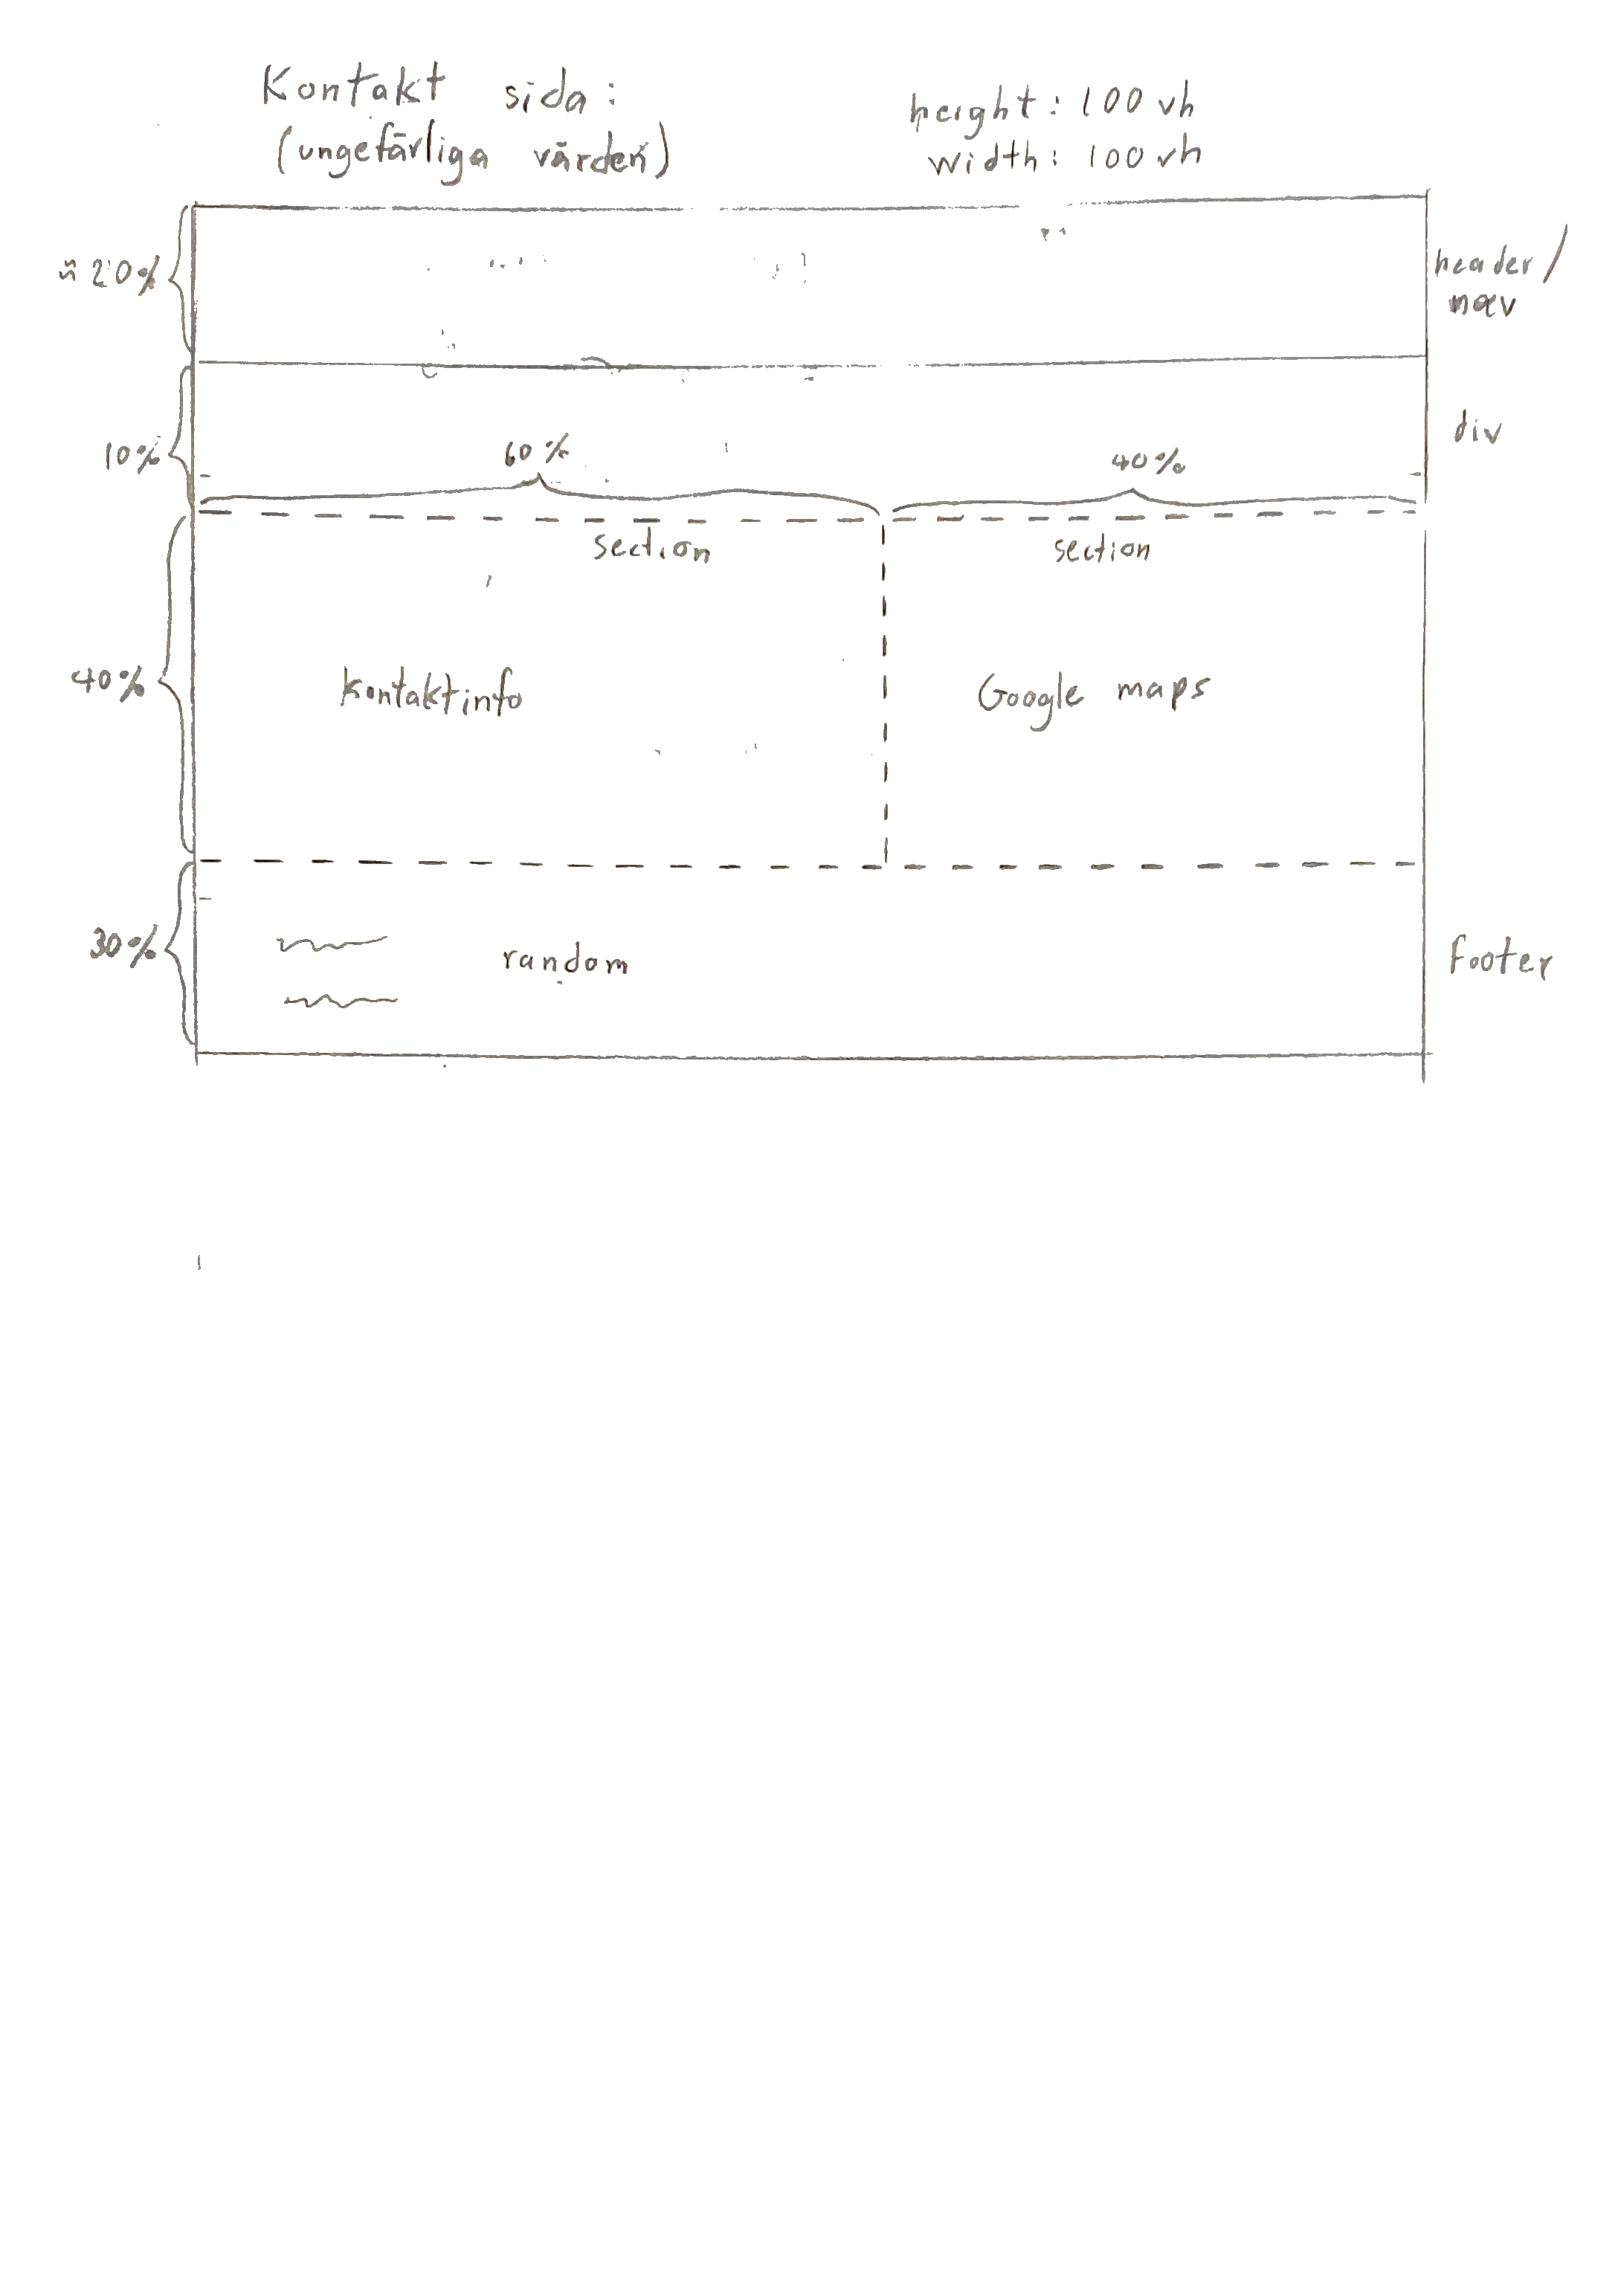 Kontakt sida:
(ungefärliga värden)
height: 100 vh
width: 100 vh
≈ 20%
header/
nav
10%
div
60%
40%
section
section
40%
Kontaktinfo
Google maps
30%
random
Footer